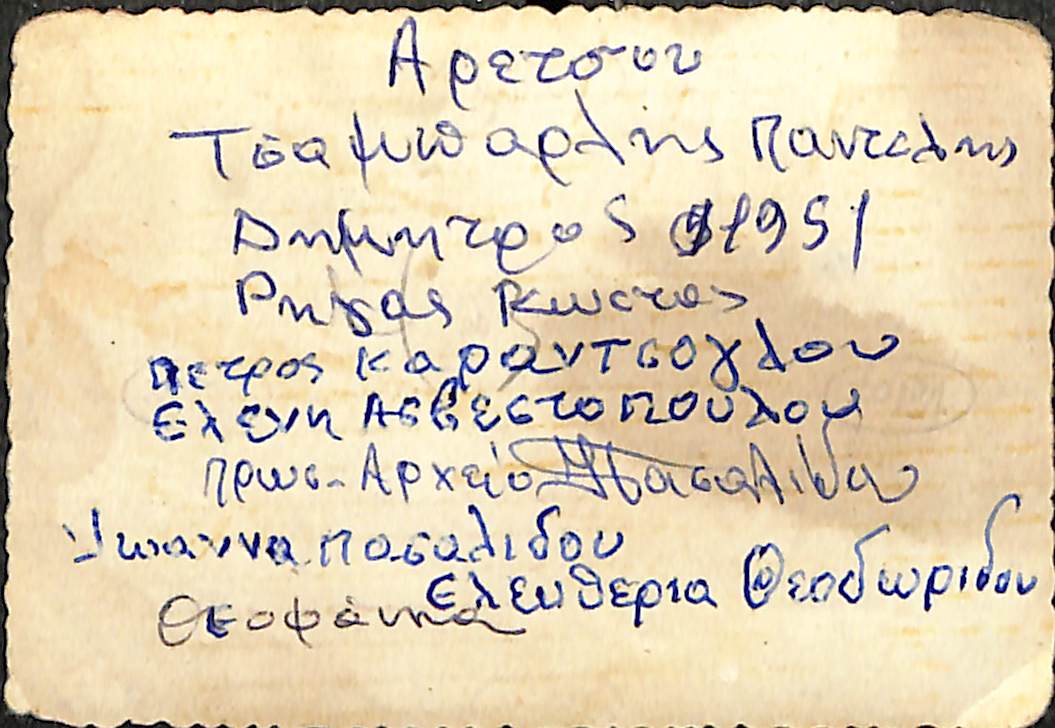 Αρετσου
Τσαμπαρλης Παντελης
Δημητρος 1951
Ρηγας Κωστας
πετρος Καραντσογλου
Ελενη Ασβεστοπουλου
πρωσ. Αρχείο Πασαλιδου
Ιωαννα πασαλιδου
Ελευθερια Θεοδωριδου
Θεοφάνια